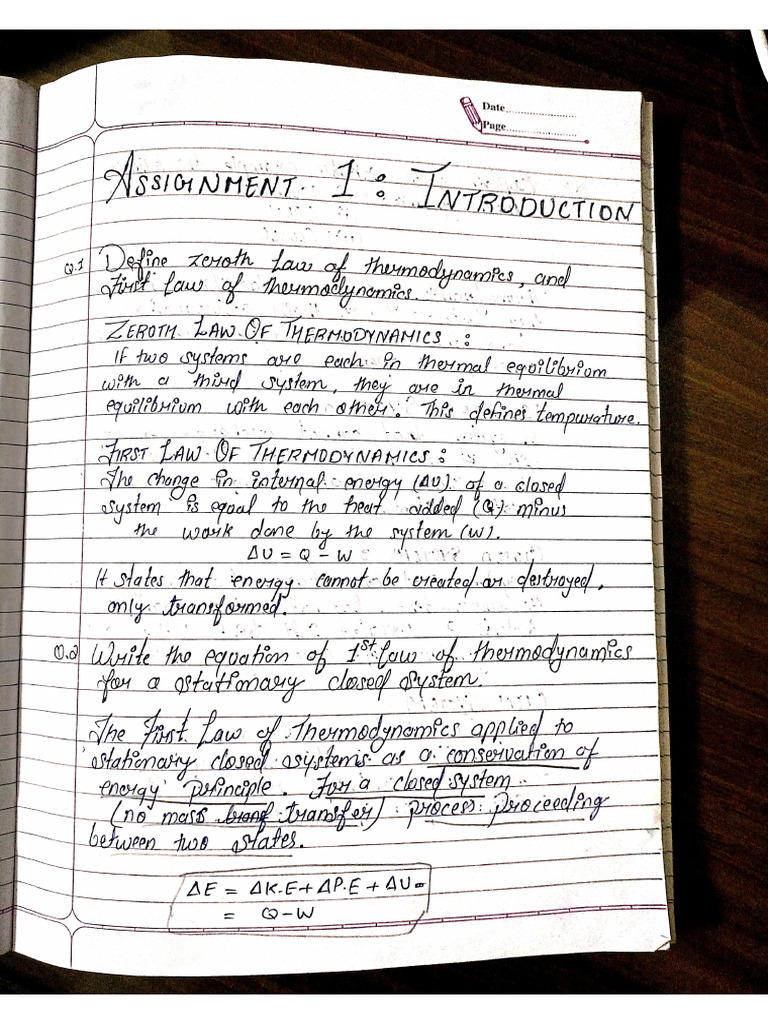 Date
Page
ASSIGNMENT. 1 : INTRODUCTION
Q.1 Define zeroth law of thermodynamics, and
first law of thermodynamics.
ZEROTH LAW OF THERMODYNAMICS :
If two systems are each in thermal equilibrium
with a third system, they are in thermal
equilibrium with each other. This defines tempurature.
FIRST LAW OF THERMODYNAMICS :
The change in internal energy (ΔU) of a closed
system is equal to the heat added (Q) minus
the work done by the system (W).
ΔU = Q - W
It states that energy cannot be created or destroyed,
only transformed.
Q.2 Write the equation of 1st law of thermodynamics
for a stationary closed system.
The First Law of Thermodynamics applied to
stationary closed systems as a conservation of
energy principle. For a closed system
(no mass transfer) process proceeding
between two states.
ΔE = ΔK.E + ΔP.E + ΔU =
= Q - W